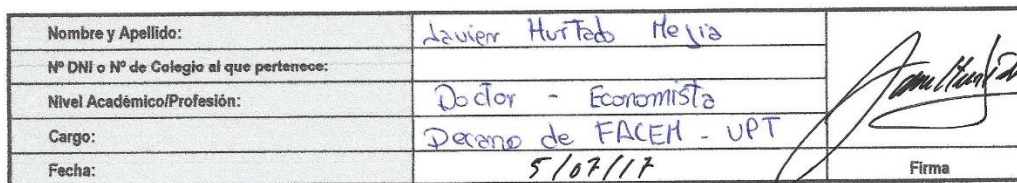 Nombre y Apellido: Javier Hurtado Mejia
Nº DNI o Nº de Colegio al que pertenece:
Nivel Académico/Profesión: Doctor - Economista
Cargo: Decano de FACEM - UPT
Fecha: 5/07/17 Firma